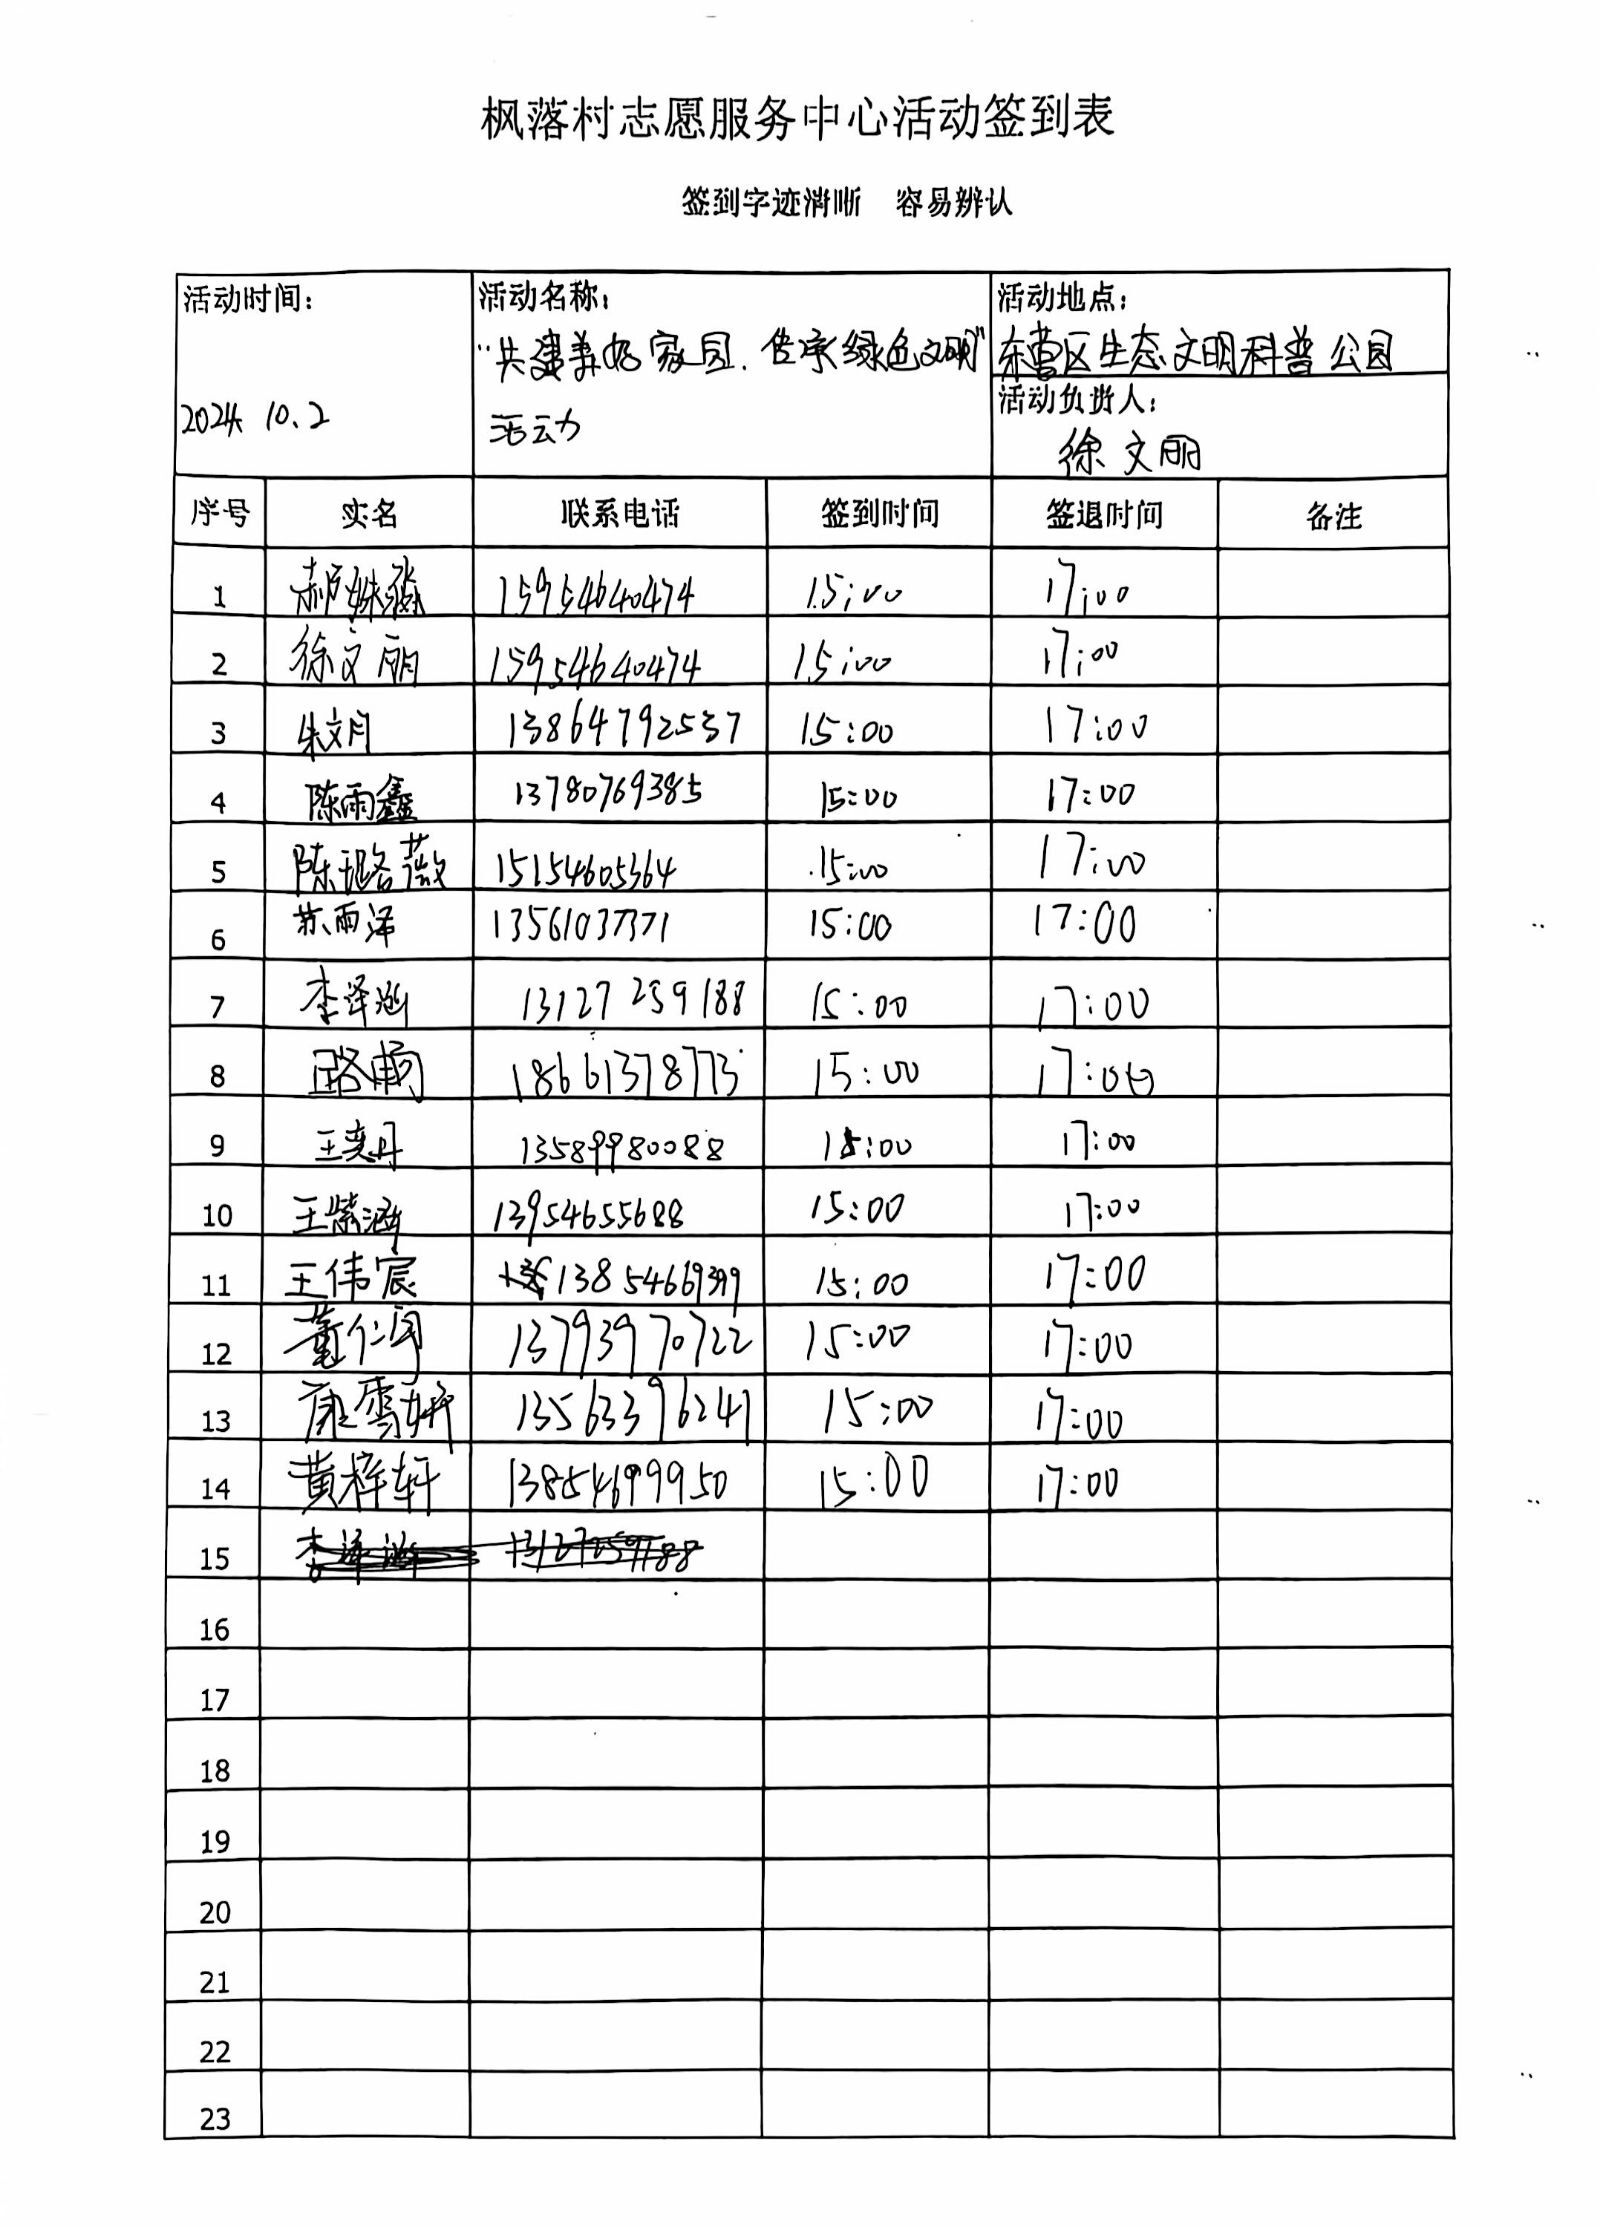 枫落村志愿服务中心活动签到表
签到字迹清晰 容易辨认
活动时间: 活动名称: 活动地点:
"共建美好家园.传承绿色文明" 东营区生态文明科普公园
活动负责人:
2024 10.2 活动 徐文丽
序号 实名 联系电话 签到时间 签退时间 备注
1 郝姝 15954640474 15:00 17:00
2 徐文丽 15954640474 15:00 17:00
3 朱文月 13864792537 15:00 17:00
4 陈雨鑫 13780769385 15:00 17:00
5 陈璐薇 15154605364 15:00 17:00
6 苏雨泽 13561037371 15:00 17:00
7 李泽涵 13127259188 15:00 17:00
8 路 18661378773 15:00 17:00
9 王奕丹 13589980088 15:00 17:00
10 王紫涵 13954655688 15:00 17:00
11 王伟宸 13854669399 15:00 17:00
12 董仁 13793970722 15:00 17:00
13 康雪妍 13563396241 15:00 17:00
14 黄梓轩 13854699950 15:00 17:00
15 李泽涵 13127259188
16
17
18
19
20
21
22
23